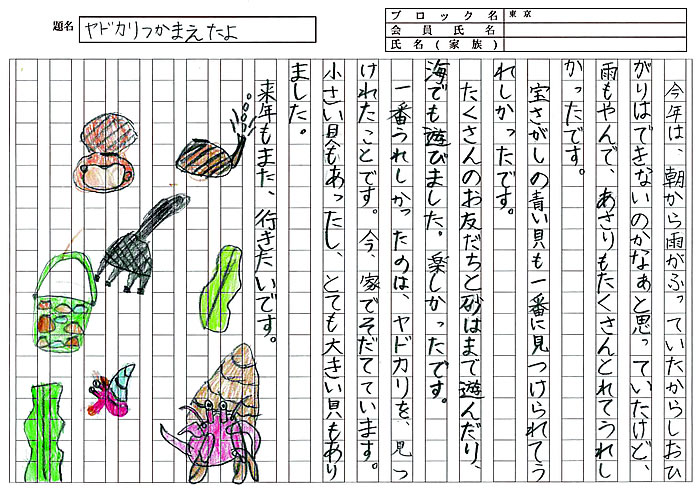 題名 ヤドカリつかまえたよ
ブロック名 東京
会員氏名
氏名(家族)
今年は、朝から雨がふっていたからしおひ
がりはできないのかなぁと思っていたけど、
雨もやんで、あさりもたくさんとれてうれし
かったです。
宝さがしの青い貝も一番に見つけられてう
れしかったです。
たくさんのお友だちと砂はまで遊んだり、
海でも遊びました。楽しかったです。
一番うれしかったのは、ヤドカリを、見つ
けれたことです。今、家でそだてています。
小さい貝もあったし、とても大きい貝もあり
ました。
来年もまた、行きたいです。